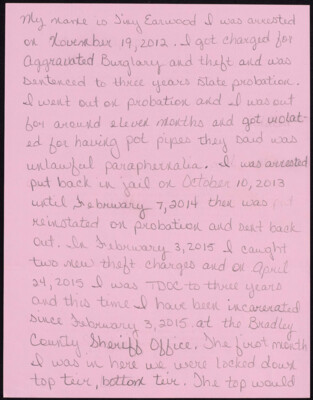 My name is Tiny Earwood I was arrested
on November 19, 2012. I got charged for
Aggravated Burglary and theft and was
sentenced to three years State probation.
I went out on probation and I was out
for around eleven months and got violat-
ed for having pot pipes they said was
unlawful paraphernalia. I was arrested
put back in jail on October 10, 2013
until Feburary 7, 2014 then was
reinstated on probation and sent back
out. In Feburary 3, 2015 I caught
two new theft charges and on April
24, 2015 I was TDOC to three years
and this time I have been incarerated
since Feburary 3, 2015 at the Bradley
County Sheriff Office. The first month
I was in here we were locked down
top teir, bottom teir. The top would